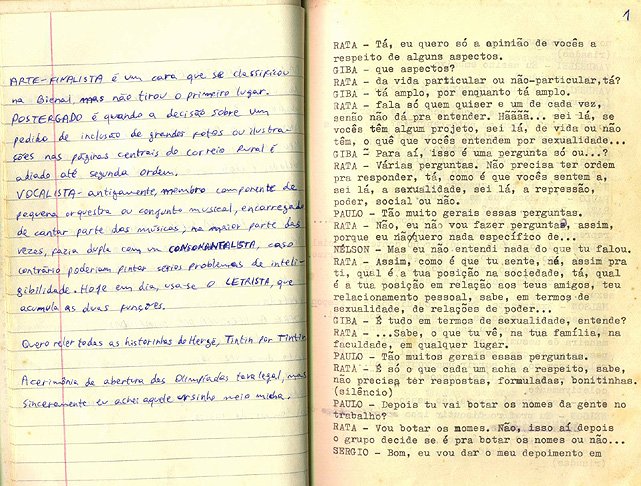 ARTE-FINALISTA é um cara que se classificou
na Bienal, mas não tirou o primeiro lugar.
POSTERGADO é quando a decisão sobre um
pedido de inclusão de grandes fotos ou ilustra-
ções nas páginas centrais do Correio Rural é
adiado até segunda ordem.
VOCALISTA - antigamente, membro componente de
pequena orquestra ou conjunto musical, encarregado
de cantar parte das músicas; na maior parte das
vezes, fazia dupla com um CONSONANTALISTA, caso
contrário poderiam pintar sérios problemas de inteli-
gibilidade. Hoje em dia, usa-se o LETRISTA, que
acumula as duas funções.
Quero reler todas as historinhas do Hergè, Tintin por Tintin
A cerimônia de abertura das Olimpíadas tava legal, mas
sinceramente eu achei aquele ursinho meio micha.
1
RATA - Tá, eu quero só a opinião de vocês a
respeito de alguns aspectos.
GIBA - que aspectos?
RATA - da vida particular ou não-particular,tá?
GIBA - tá amplo, por enquanto tá amplo.
RATA - fala só quem quiser e um de cada vez,
senão não dá pra entender. Hããã... sei lá, se
vocês têm algum projeto, sei lá, de vida ou não
têm, o que que vocês entendem por sexualidade...
GIBA - Para aí, isso é uma pergunta só ou...?
RATA - Várias perguntas. Não precisa ter ordem
pra responder, tá, como é que vocês sentem a,
sei lá, a sexualidade, sei lá, a repressão,
poder, social ou não.
PAULO - Tão muito gerais essas perguntas.
RATA - Não, eu não vou fazer perguntas, assim,
porque eu não quero nada específico de...
NELSON - Mas eu não entendi nada do que tu falou.
RATA - Assim, como é que tu sente, né, assim pra
ti, qual é a tua posição na sociedade, tá, qual
é a tua posição em relação aos teus amigos, teu
relacionamento pessoal, sabe, em termos de
sexualidade, de relações de poder...
GIBA - É tudo em termos de sexualidade, entende?
RATA - ...Sabe, o que tu vê, na tua família, na
faculdade, em qualquer lugar.
PAULO - Tão muitos gerais essas perguntas.
RATA - É só o que cada um acha a respeito, sabe,
não precisa ter respostas, formuladas, bonitinhas.
(silêncio)
PAULO - Depois tu vai botar os nomes da gente no
trabalho?
RATA - Vou botar os nomes. Não, isso aí depois
o grupo decide se é pra botar os nomes ou não...
SERGIO - Bom, eu vou dar o meu depoimento em